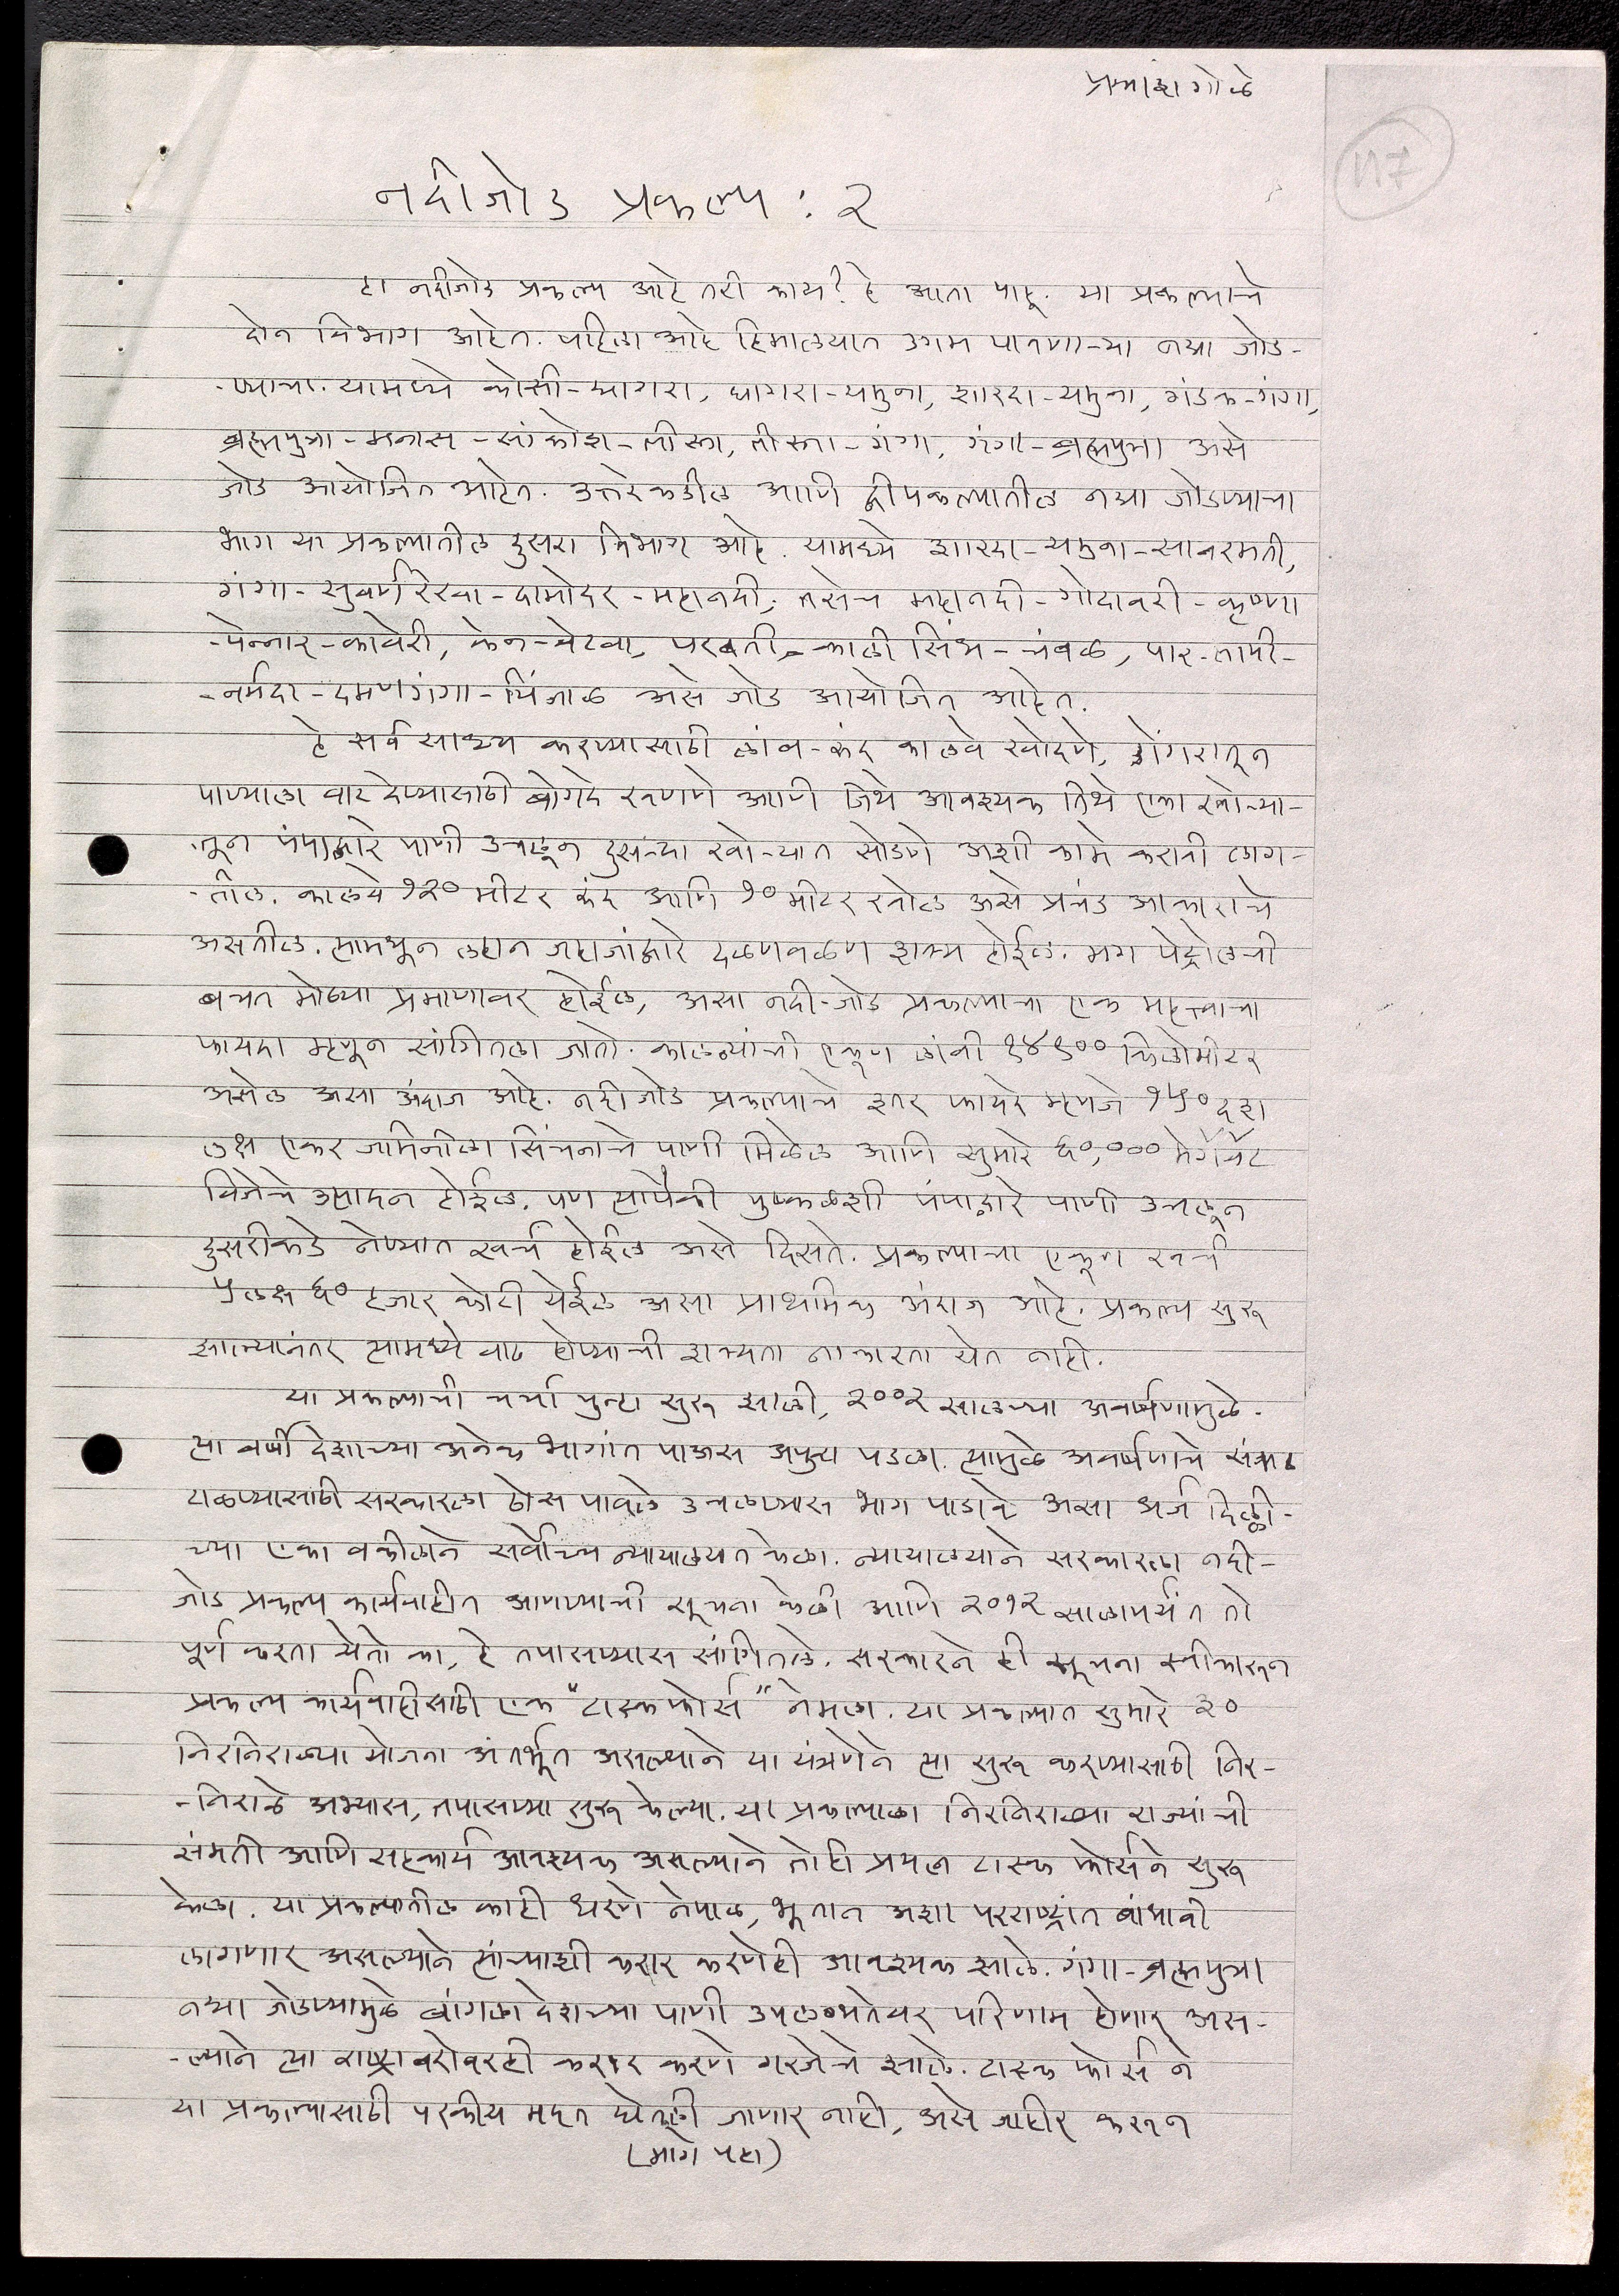 प्रकाश गोळे
117
नदीजोड प्रकल्प : २
हा नदीजोड प्रकल्प आहे तरी काय? हे आता पाहू. या प्रकल्पाचे
दोन विभाग आहेत. पहिला आहे हिमालयात उगम पावणाऱ्या नद्या जोड-
-ण्याचा. यामध्ये कोसी-घागरा, घागरा-यमुना, शारदा-यमुना, गंडक-गंगा,
ब्रह्मपुत्रा-मनास-सांकोश-तीस्ता, तीस्ता-गंगा, गंगा-ब्रह्मपुत्रा असे
जोड आयोजित आहेत. उत्तरेकडील आणि द्वीपकल्पातील नद्या जोडण्याचा
भाग या प्रकल्पातील दुसरा विभाग आहे. यामध्ये शारदा-यमुना-साबरमती,
गंगा-सुवर्णरेखा-दामोदर-महानदी, तसेच महानदी-गोदावरी-कृष्णा
-पेन्नार-कावेरी, केन-बेटवा, परबती-काली सिंध-चंबळ, पार-तापी-
-नर्मदा-दमणगंगा-पिंजाळ असे जोड आयोजित आहेत.
हे सर्व साध्य करण्यासाठी लांब-रुंद कालवे खोदणे, डोंगरातून
पाण्याला वाट देण्यासाठी बोगदे खणणे आणि जिथे आवश्यक तिथे एका खोऱ्या-
-तून पंपाद्वारे पाणी उचलून दुसऱ्या खोऱ्यात सोडणे अशी कामे करावी लाग-
-तील. कालवे १२० मीटर रुंद आणि १० मीटर खोल असे प्रचंड आकाराचे
असतील. त्यामधून लहान जहाजांद्वारे दळणवळण शक्य होईल. मग पेट्रोलची
बचत मोठ्या प्रमाणावर होईल, असा नदी-जोड प्रकल्पाचा एक महत्त्वाचा
फायदा म्हणून सांगितला जातो. कालव्यांची एकूण लांबी १४९०० किलोमीटर
असेल असा अंदाज आहे. नदीजोड प्रकल्पाचे इतर फायदे म्हणजे १५० दश
लक्ष एकर जमिनीला सिंचनाचे पाणी मिळेल आणि सुमारे ६०,००० मेगॅवॅट
विजेचे उत्पादन होईल. पण त्यापैकी पुष्कळशी पंपाद्वारे पाणी उचलून
दुसरीकडे नेण्यात खर्च होईल असे दिसते. प्रकल्पाचा एकूण खर्च
५ लक्ष ६० हजार कोटी येईल असा प्राथमिक अंदाज आहे. प्रकल्प सुरू
झाल्यानंतर त्यामध्ये वाढ होण्याची शक्यता नाकारता येत नाही.
या प्रकल्पाची चर्चा पुन्हा सुरू झाली, २००२ सालच्या अवर्षणामुळे.
त्या वर्षी देशाच्या अनेक भागांत पाऊस अपुरा पडला. त्यामुळे अवर्षणाचे संकट
टाळण्यासाठी सरकारला ठोस पावले उचलण्यास भाग पाडावे असा अर्ज दिल्ली-
च्या एका वकीलाने सर्वोच्च न्यायालयात केला. न्यायालयाने सरकारला नदी-
जोड प्रकल्प कार्यवाहीत आणण्याची सूचना केली आणि २०१२ सालापर्यंत तो
पूर्ण करता येतो का, हे तपासण्यास सांगितले. सरकारने ही सूचना स्वीकारून
प्रकल्प कार्यवाहीसाठी एक "टास्क फोर्स" नेमला. या प्रकल्पात सुमारे ३०
निरनिराळ्या योजना अंतर्भूत असल्याने या यंत्रणेने त्या सुरू करण्यासाठी निर-
-निराळे अभ्यास, तपासण्या सुरू केल्या. या प्रकल्पाला निरनिराळ्या राज्यांची
संमती आणि सहकार्य आवश्यक असल्याने तोही प्रयत्न टास्क फोर्सने सुरू
केला. या प्रकल्पातील काही धरणे नेपाळ, भूतान अशा परराष्ट्रांत बांधावी
लागणार असल्याने त्यांच्याशी करार करणेही आवश्यक झाले. गंगा-ब्रह्मपुत्रा
नद्या जोडण्यामुळे बांगला देशाच्या पाणी उपलब्धतेवर परिणाम होणार अस-
-ल्याने त्या राष्ट्राबरोबरही करार करणे गरजेचे झाले. टास्क फोर्स ने
या प्रकल्पासाठी परकीय मदत घेतली जाणार नाही, असे जाहीर करून
(मागे पहा)